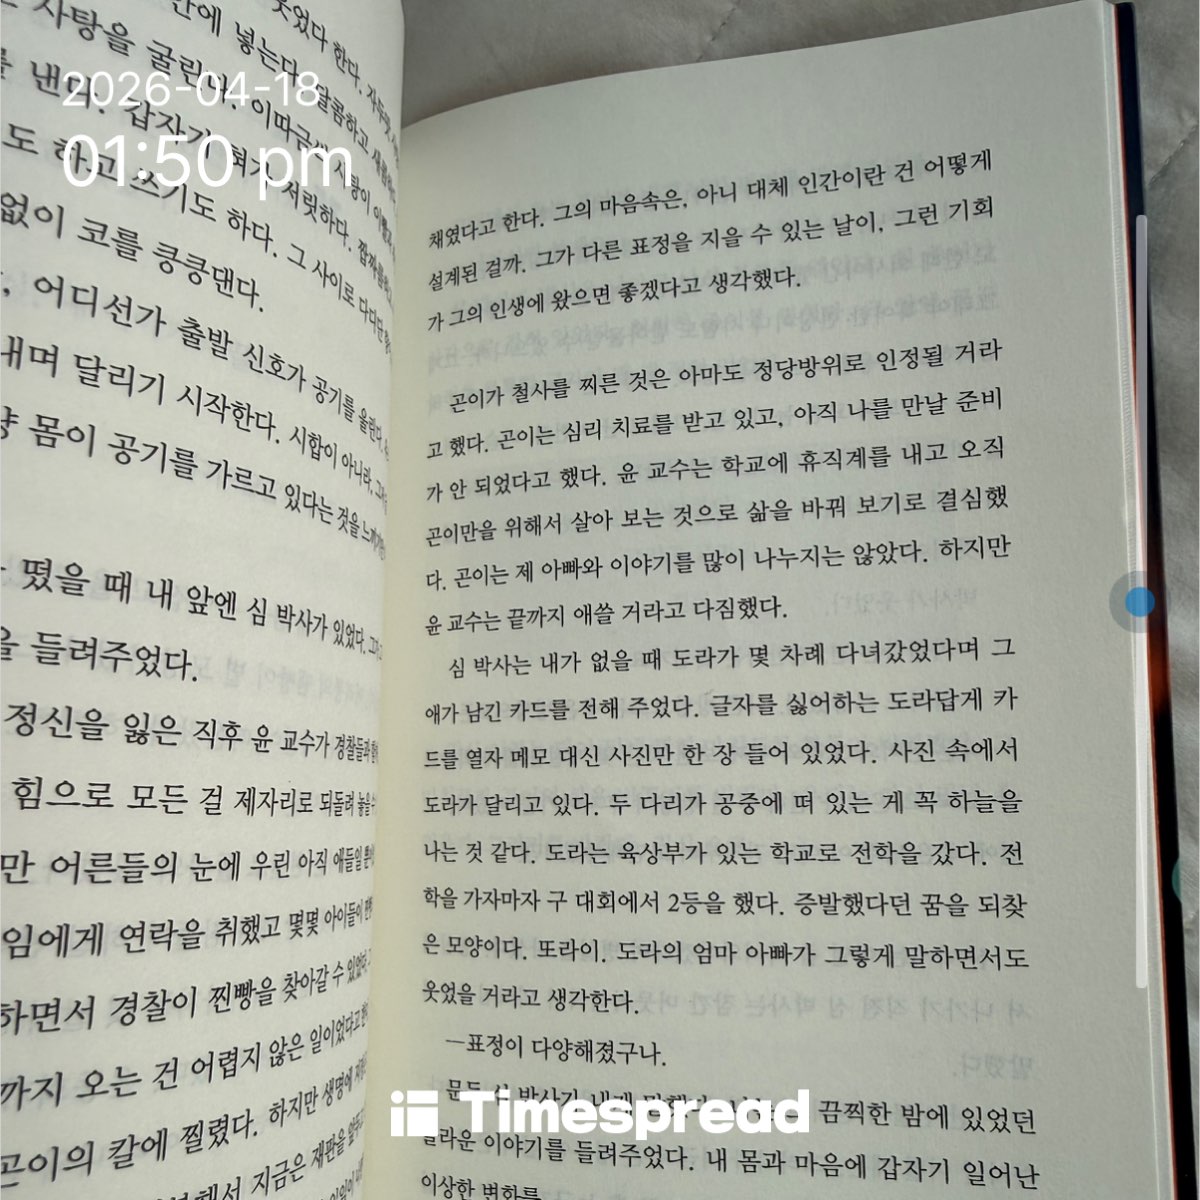 웃었다 한다. 자두맛
안에 넣는다. 달콤하고
사탕을 굴린다. 이따금씩 사탕이
를 낸다. 갑자기 혀가 저릿하다. 짭짜름하고
도 하고 쓰기도 하다. 그 사이로 다디단
없이 코를 킁킁댄다.
, 어디선가 출발 신호가 공기를 울린다.
내며 달리기 시작한다. 시합이 아니라.
냥 몸이 공기를 가르고 있다는 것을 느끼기만
떴을 때 내 앞엔 심 박사가 있었다.
을 들려주었다.
정신을 잃은 직후 윤 교수가 경찰들과
힘으로 모든 걸 제자리로 되돌려 놓을 수
만 어른들의 눈에 우린 아직 애들일 뿐이
임에게 연락을 취했고 몇몇 아이들이
하면서 경찰이 찐빵을 찾아갈 수 있었다.
까지 오는 건 어렵지 않은 일이었다고
곤이의 칼에 찔렸다. 하지만 생명에
해서 지금은 재판을 앞두고
2026-04-18
01:50 pm
채였다고 한다. 그의 마음속은, 아니 대체 인간이란 건 어떻게
설계된 걸까. 그가 다른 표정을 지을 수 있는 날이, 그런 기회
가 그의 인생에 왔으면 좋겠다고 생각했다.
곤이가 철사를 찌른 것은 아마도 정당방위로 인정될 거라
고 했다. 곤이는 심리 치료를 받고 있고, 아직 나를 만날 준비
가 안 되었다고 했다. 윤 교수는 학교에 휴직계를 내고 오직
곤이만을 위해서 살아 보는 것으로 삶을 바꿔 보기로 결심했
다. 곤이는 제 아빠와 이야기를 많이 나누지는 않았다. 하지만
윤 교수는 끝까지 애쓸 거라고 다짐했다.
심 박사는 내가 없을 때 도라가 몇 차례 다녀갔었다며 그
애가 남긴 카드를 전해 주었다. 글자를 싫어하는 도라답게 카
드를 열자 메모 대신 사진만 한 장 들어 있었다. 사진 속에서
도라가 달리고 있다. 두 다리가 공중에 떠 있는 게 꼭 하늘을
나는 것 같다. 도라는 육상부가 있는 학교로 전학을 갔다. 전
학을 가자마자 구 대회에서 2등을 했다. 증발했다던 꿈을 되찾
은 모양이다. 또라이. 도라의 엄마 아빠가 그렇게 말하면서도
웃었을 거라고 생각한다.
—표정이 다양해졌구나.
문득 심 박사가 내게 말했다. 끔찍한 밤에 있었던
놀라운 이야기를 들려주었다. 내 몸과 마음에 갑자기 일어난
이상한 변화를
Timespread